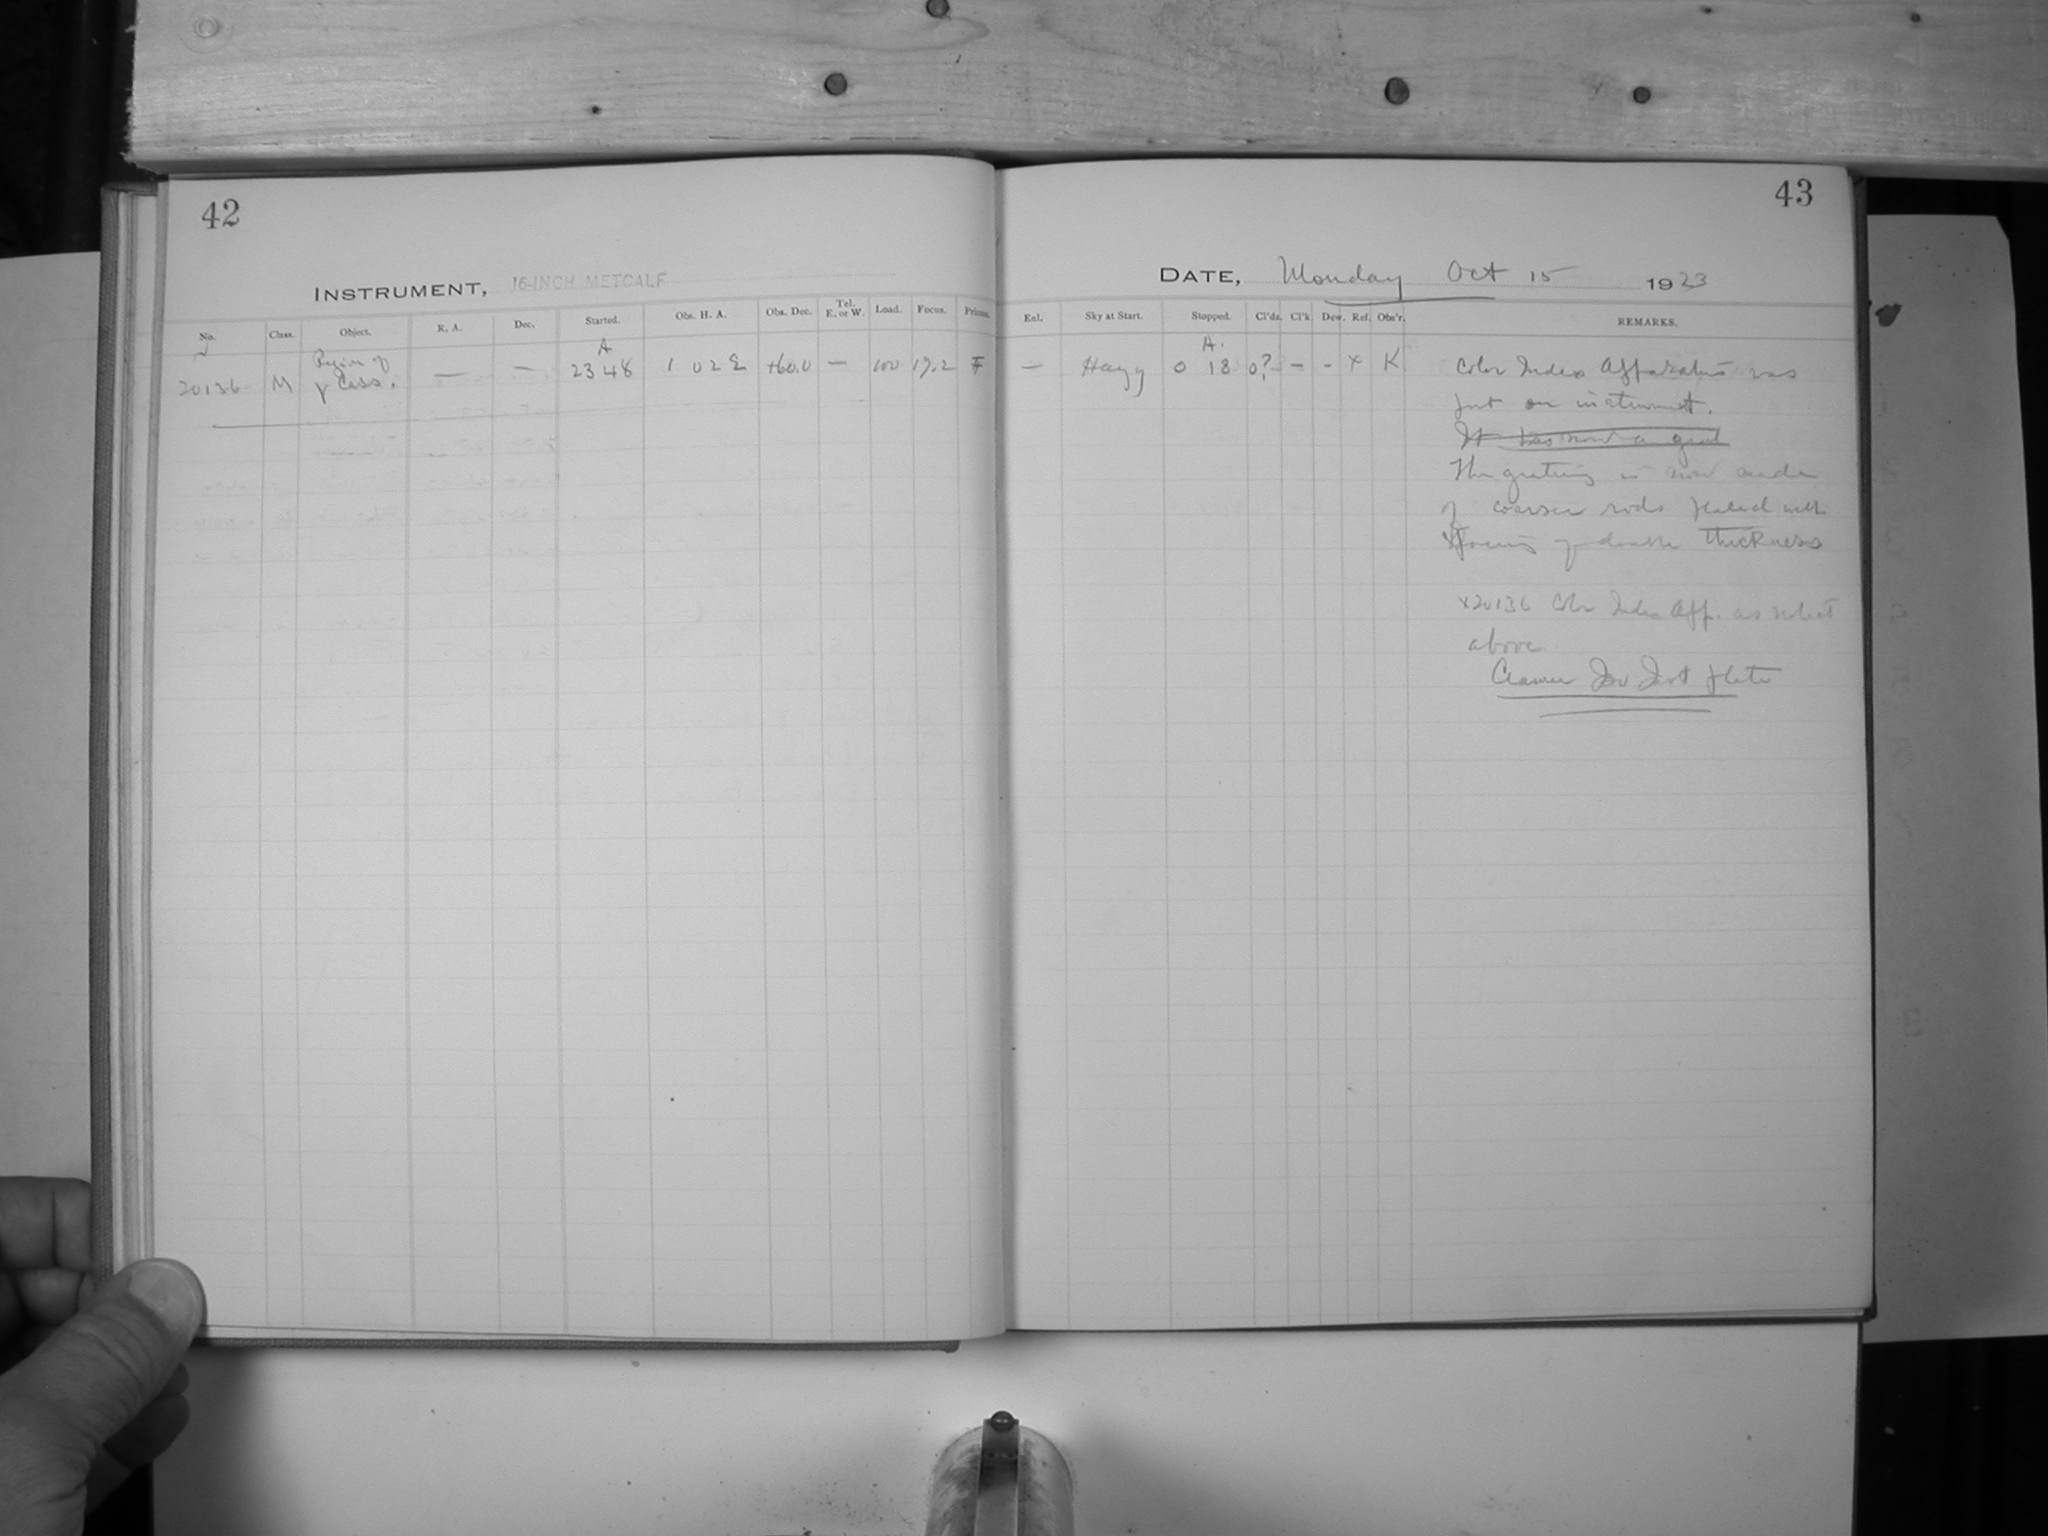 42
INSTRUMENT, 16-INCH METCALF
No. Class. Object. R. A. Dec. Started. Obs. H. A. Obs. Dec. Tel. E. or W. Load. Focus. Prisms.
20136 M Region of γ Cass. — — A 23 48 1 02 E +60.0 — 100 17.2 F
43
DATE, Monday Oct 15 1923
Enl. Sky at Start. Stopped. Cl'ds. Cl'k Dew. Ref. Obs'r. REMARKS.
— Hazy A. 0 18 0? – - x K
Color Index Apparatus was
put on instrument.
It has now a
The grating is now made
of coarser rods placed with
of double thickness
x20136 Color Index App. as
above
Cramer Iso Inst plate